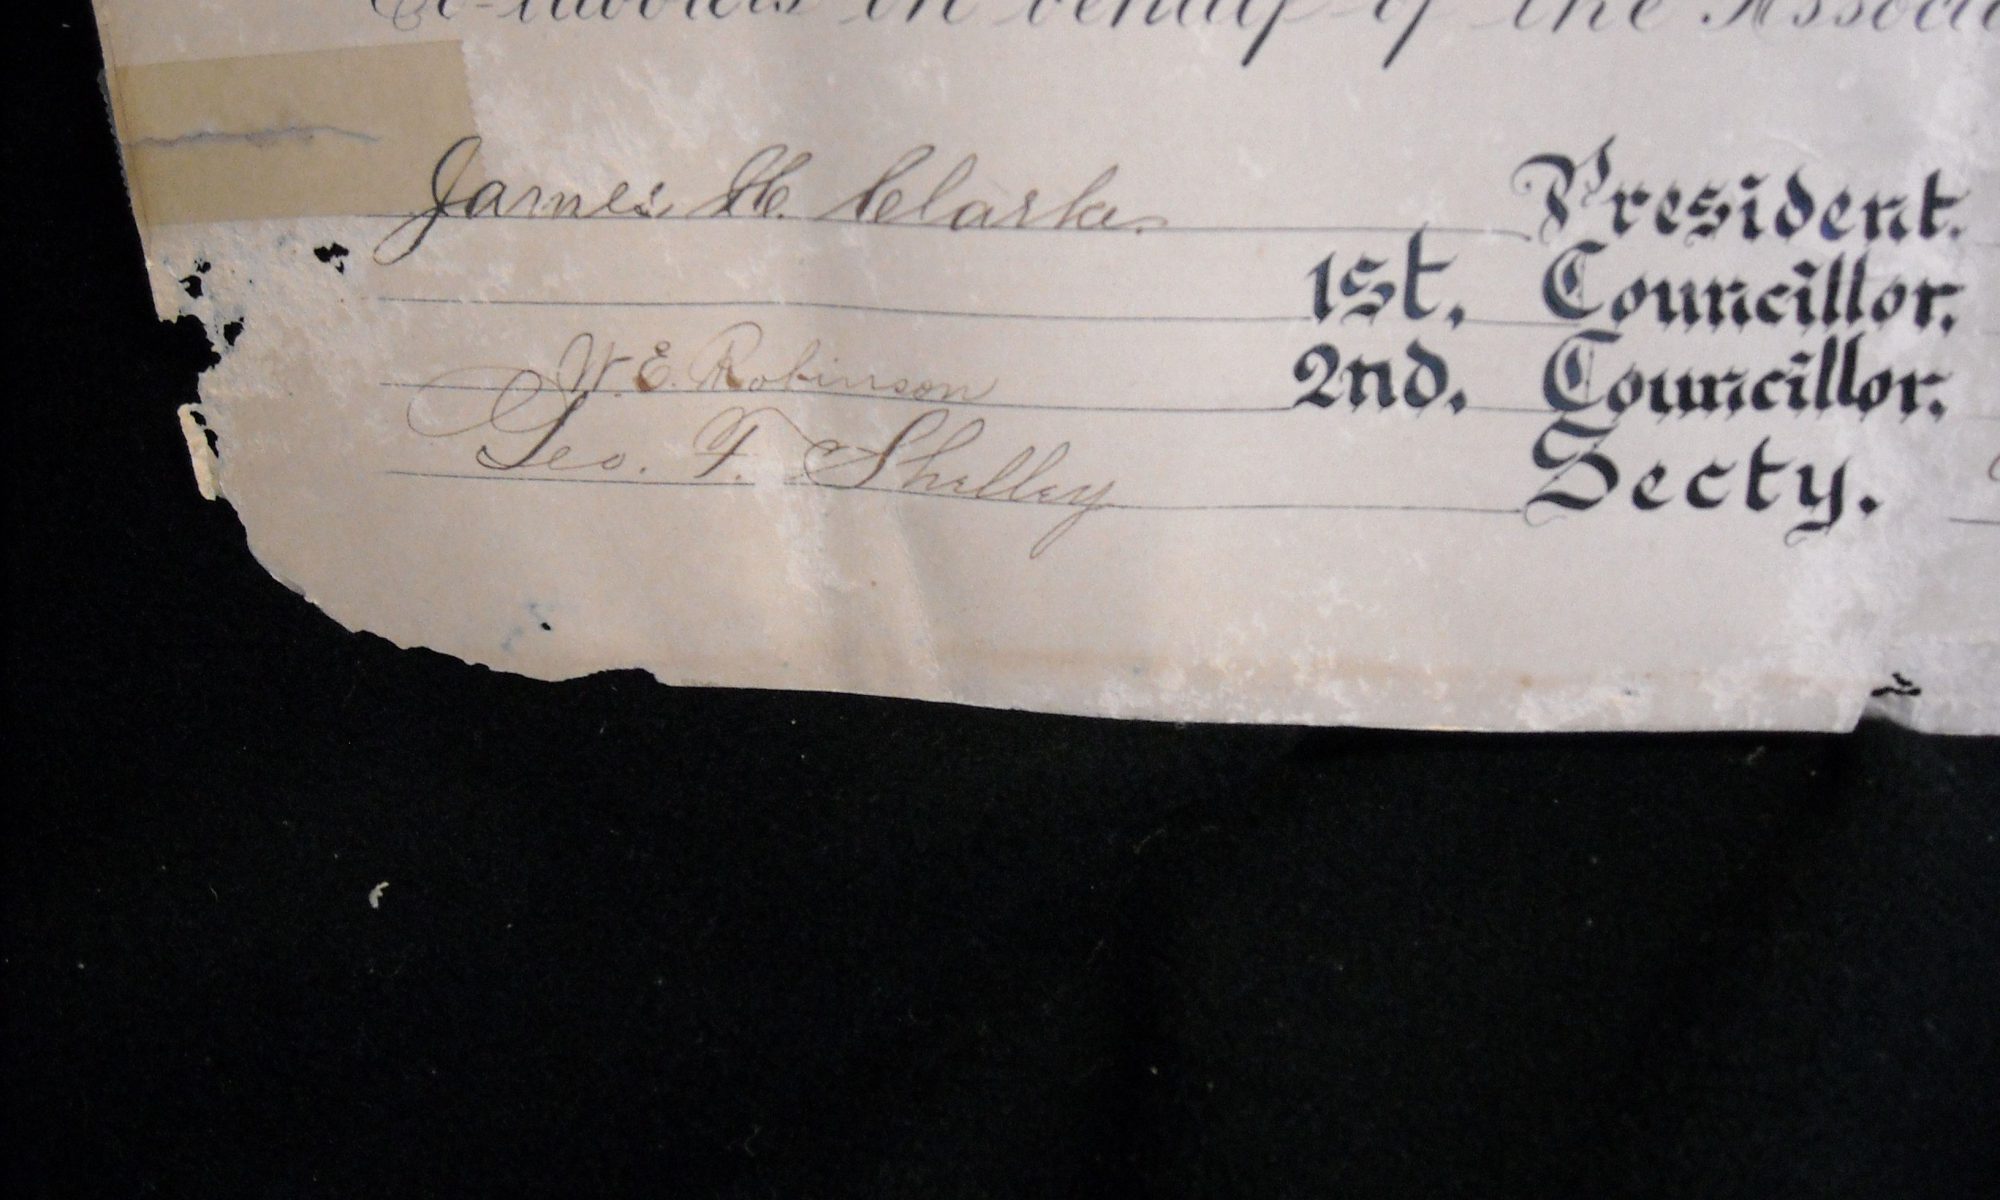 Co-laborers in behalf of the Associa
James H. Clarke. President.
1st. Councillor.
W. E. Robinson 2nd. Councillor.
Geo. F. Shelley Secty.